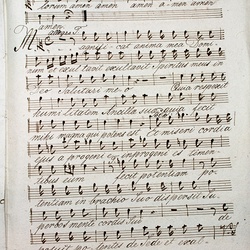 lorum amen amen amen a - men amen
Magnifi - cat anima mea Domi
num et exultavit exultavit Spiritus meus in
Deo Salutari me o Quia respexit
humilitatem Ancilla sua quia fecit
mihi magna qui potens est et miseri cordia
ejus a progenie in progenies is timen-
tibus eum fecit potentiam po
tentiam in brachio Suo dispersit Su-
perbos mente cordis Sui de
posuit po tentes de Sede et exal-